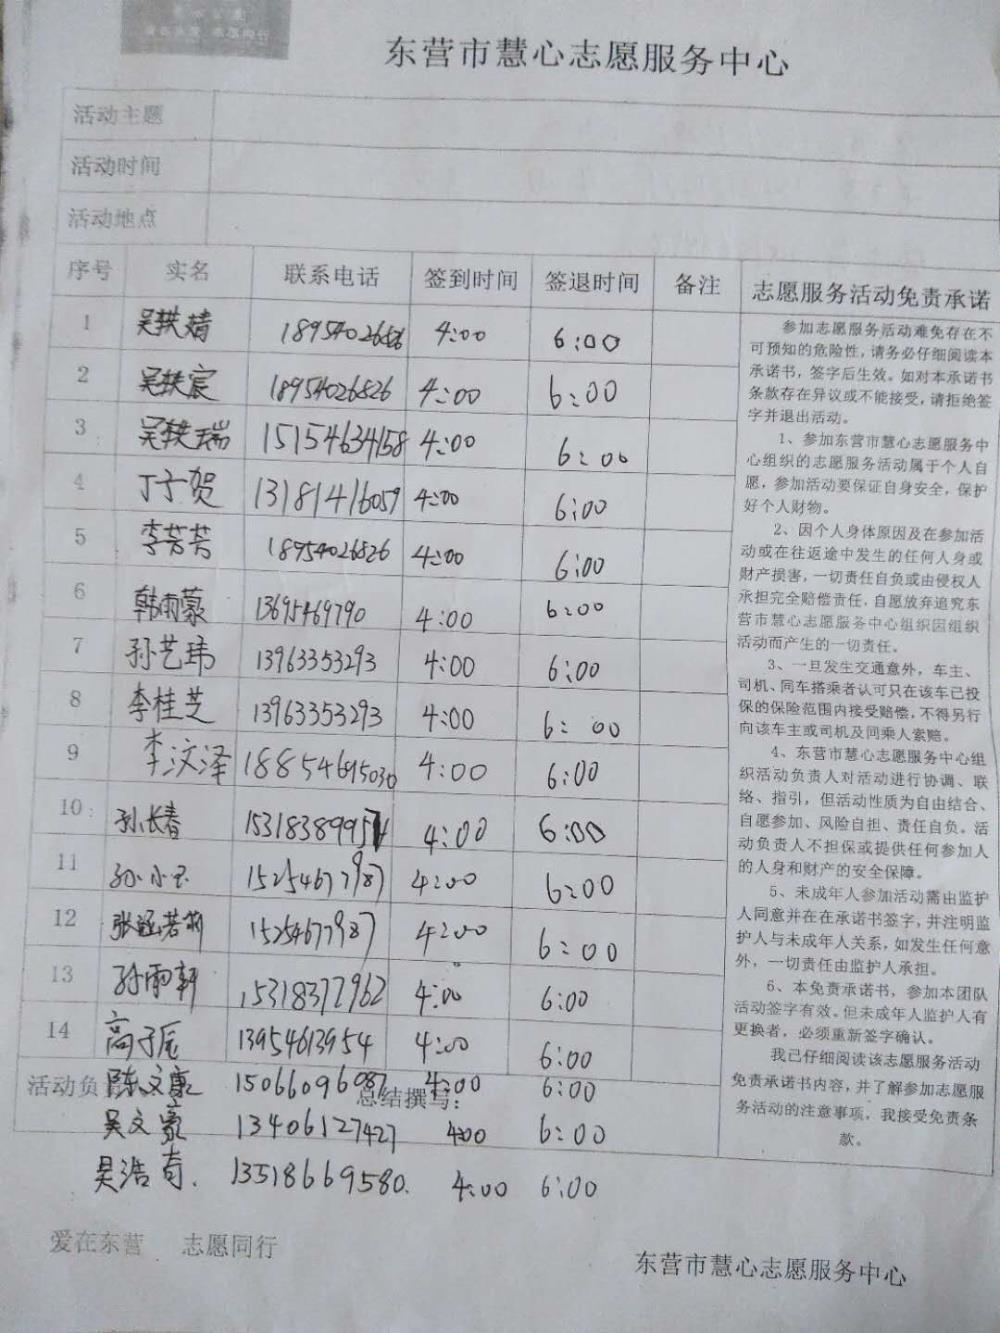 东营市慧心志愿服务中心
活动主题
活动时间
活动地点
序号 实名 联系电话 签到时间 签退时间 备注 志愿服务活动免责承诺
1 吴轶婧 4:00 6:00
2 吴轶宸 18954026826 4:00 6:00
3 吴轶瑞 15154634158 4:00 6:00
4 丁子贺 13181416059 4:00 6:00
5 李芳芳 18954026826 4:00 6:00
6 韩雨蒙 13695469790 4:00 6:00
7 孙艺玮 13963353293 4:00 6:00
8 李桂芝 13963353293 4:00 6:00
9 李汶泽 18854695030 4:00 6:00
10 孙长春 4:00 6:00
11 孙小玉 15254677987 4:00 6:00
12 张涵若 15254677987 4:00 6:00
13 孙雨轩 15318377962 4:00 6:00
14 高子辰 13954613954 4:00 6:00
活动负 陈文豪 15066096087 总结撰写: 4:00 6:00
吴文豪 13406127427 4:00 6:00
吴浩奇. 13518669580. 4:00 6:00
参加志愿服务活动难免存在不
可预知的危险性,请务必仔细阅读本
承诺书,签字后生效。如对本承诺书
条款存在异议或不能接受,请拒绝签
字并退出活动。
1、参加东营市慧心志愿服务中
心组织的志愿服务活动属于个人自
愿,参加活动要保证自身安全,保护
好个人财物。
2、因个人身体原因及在参加活
动或在往返途中发生的任何人身或
财产损害,一切责任自负或由侵权人
承担完全赔偿责任,自愿放弃追究东
营市慧心志愿服务中心组织因组织
活动而产生的一切责任。
3、一旦发生交通意外,车主、
司机、同车搭乘者认可只在该车已投
保的保险范围内接受赔偿,不得另行
向该车主或司机及同乘人索赔。
4、东营市慧心志愿服务中心组
织活动负责人对活动进行协调、联
络、指引,但活动性质为自由结合、
自愿参加、风险自担、责任自负。活
动负责人不担保或提供任何参加人
的人身和财产的安全保障。
5、未成年人参加活动需由监护
人同意并在在承诺书签字,并注明监
护人与未成年人关系,如发生任何意
外,一切责任由监护人承担。
6、本免责承诺书,参加本团队
活动签字有效。但未成年人监护人有
更换者,必须重新签字确认。
我已仔细阅读该志愿服务活动
免责承诺书内容,并了解参加志愿服
务活动的注意事项,我接受免责条
款。
爱在东营 志愿同行
东营市慧心志愿服务中心